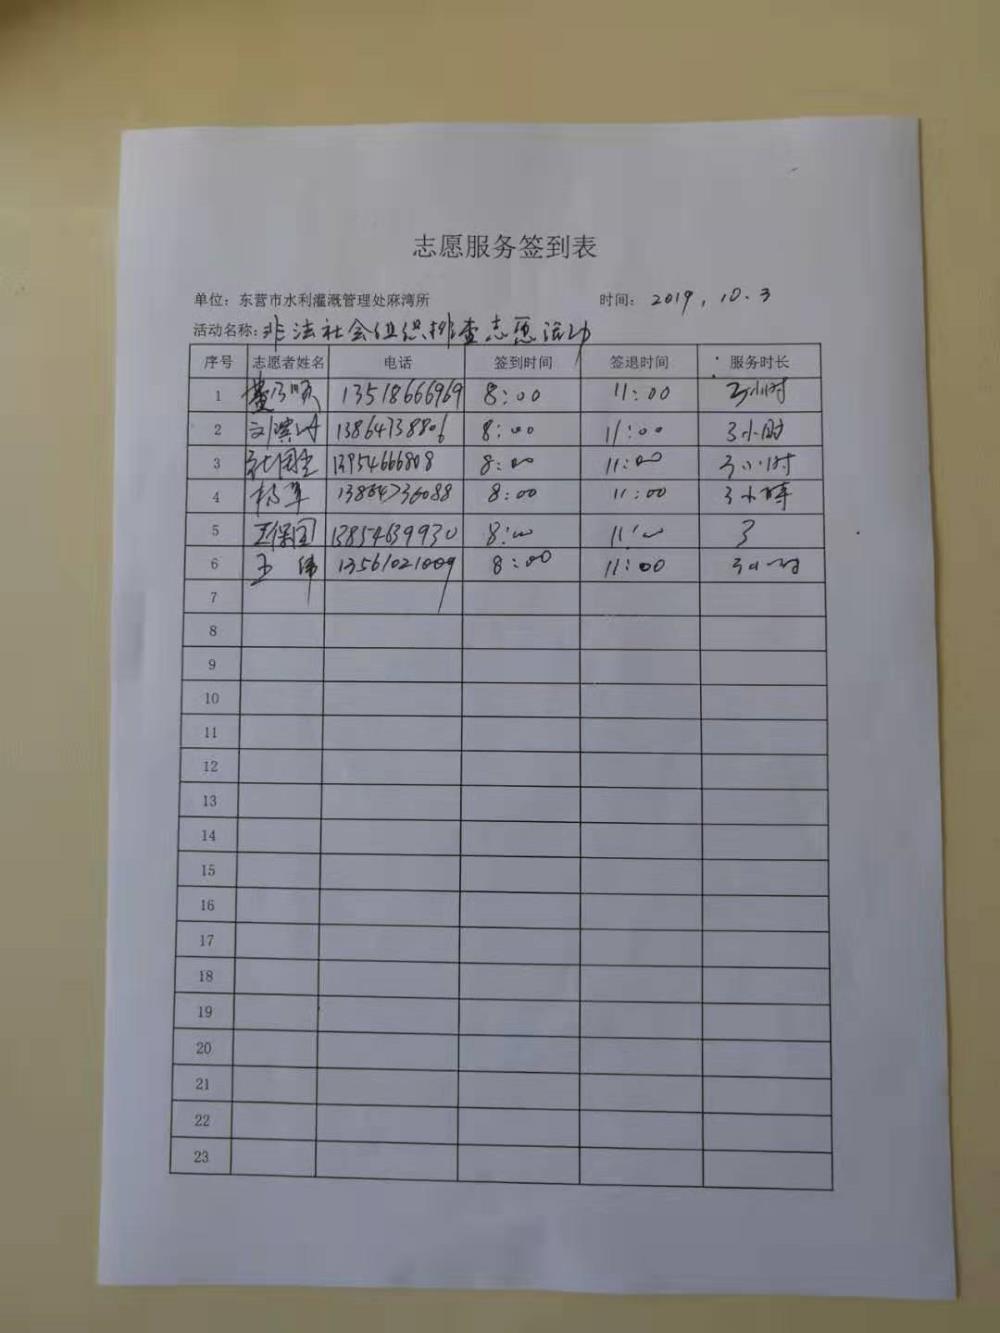 志愿服务签到表
单位：东营市水利灌溉管理处麻湾所 时间：2019.10.3
活动名称：非法社会组织排查志愿活动
序号 志愿者姓名 电话 签到时间 签退时间 服务时长
1 13518666969 8:00 11:00 3小时
2 13864738806 8:00 11:00 3小时
3 13954666808 8:00 11:00 3小时
4 杨军 8:00 11:00 3小時
5 王保国 13854639930 8:00 11:00 3
6 王伟 13561021009 8:00 11:00 3小时
7
8
9
10
11
12
13
14
15
16
17
18
19
20
21
22
23